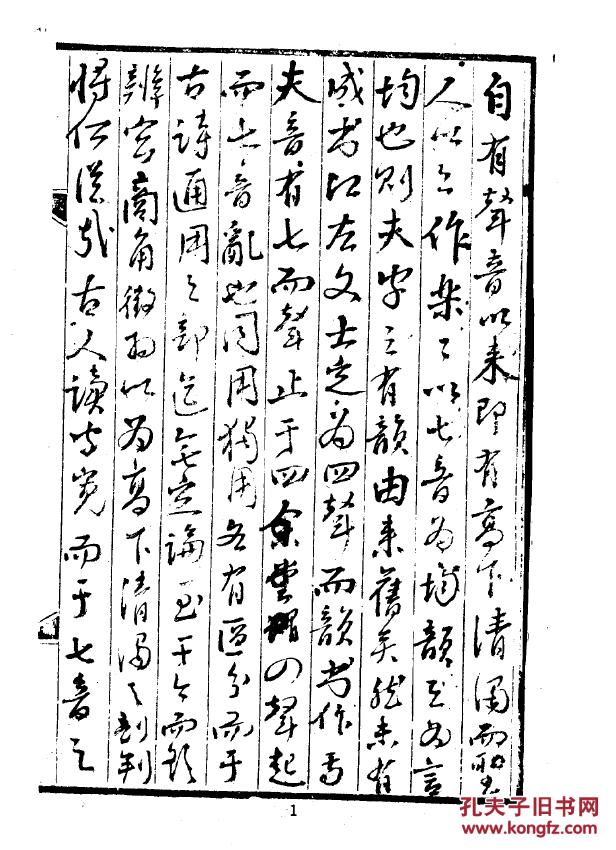 自有聲音以來即有高下清濁而聖
人以之作樂樂以七音為均韻之為言
均也則夫字之有韻由來舊矣然未有
成書江左文士定為四聲而韻書作焉
夫音有七而聲止于四余嘗謂四聲起
而七音亂也同用獨用各有區分而于
古詩通用之部迄無定論至于今而欲
辨宮商角徵羽以為高下清濁之剖判
將何從哉古人讀字寬而于七音之
1
孔夫子旧书网
www.kongfz.com